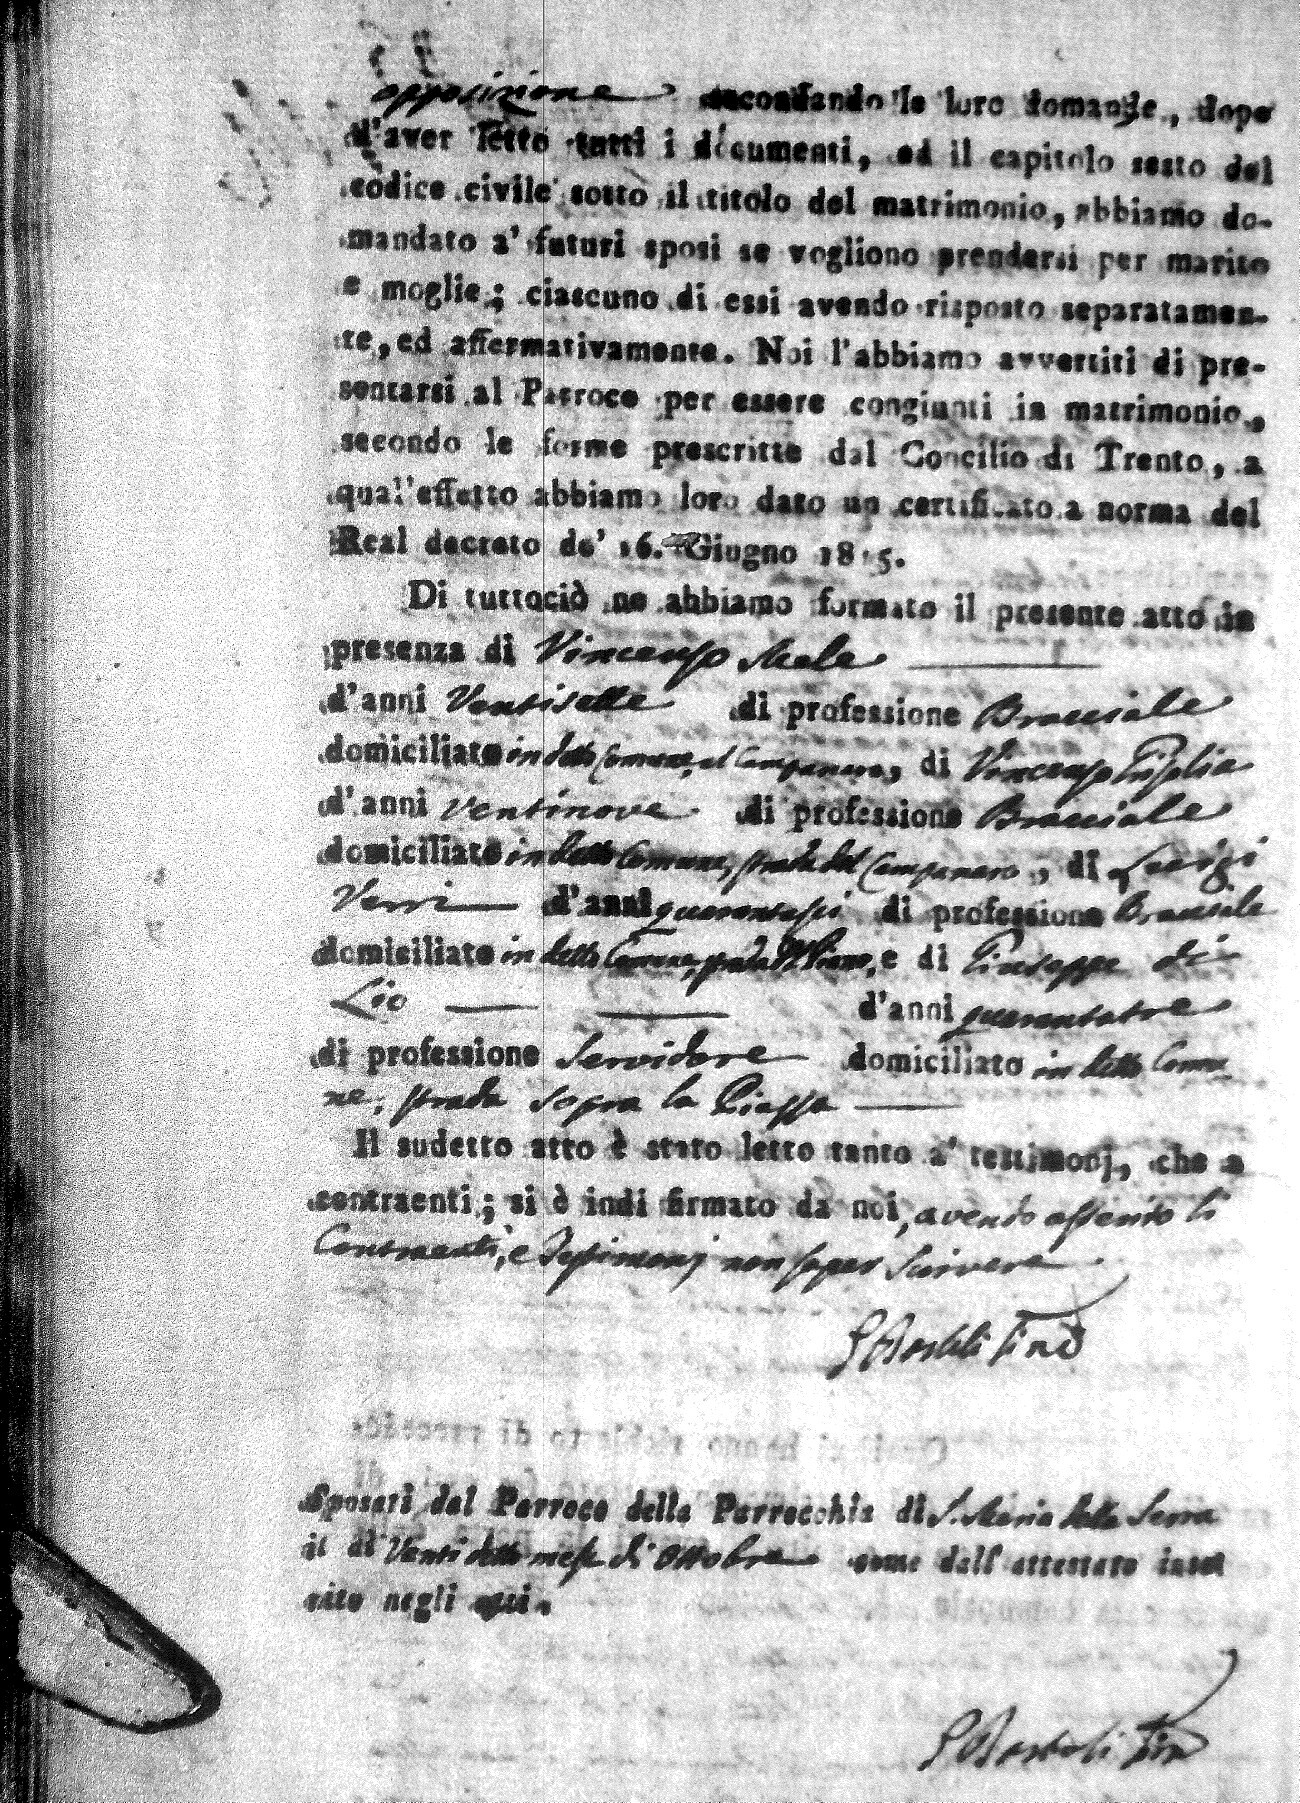 opposizione secondando le loro domande, dopo
d'aver letto tutti i documenti, ed il capitolo sesto del
codice civile sotto il titolo del matrimonio, abbiamo do-
mandato a' futuri sposi se vogliono prendersi per marito
e moglie; ciascuno di essi avendo risposto separatamen-
te, ed affermativamente. Noi l'abbiamo avvertiti di pre-
sentarsi al Parroco per essere congiunti in matrimonio,
secondo le forme prescritte dal Concilio di Trento, a
qual'effetto abbiamo loro dato un certificato a norma del
Real decreto de' 16. Giugno 1815.
Di tuttociò ne abbiamo formato il presente atto in
presenza di Vincenzo Mele
d'anni Ventisette di professione Bracciale
domiciliato in detto Comune, al Campanaro, di Vincenzo
d'anni Ventinove di professione Bracciale
domiciliato in detto Comune, strada del Campanaro, di Luigi
Verri d'anni quarantasei di professione Bracciale
domiciliato in detto Comune, strada Piano, e di Giuseppe di
Lio d'anni quarantatre
di professione Servidore domiciliato in detto Comu-
ne, strada sopra la Piazza
Il sudetto atto è stato letto tanto a' testimonj, che a
contraenti; si è indi firmato da noi, avendo asserito li
Contraenti, e Testimonj non saper scrivere

Sposati dal Parroco della Parrocchia di S. Maria della Serra
il dì Venti detto mese di Ottobre come dall'attestato inse
rito negli atti.